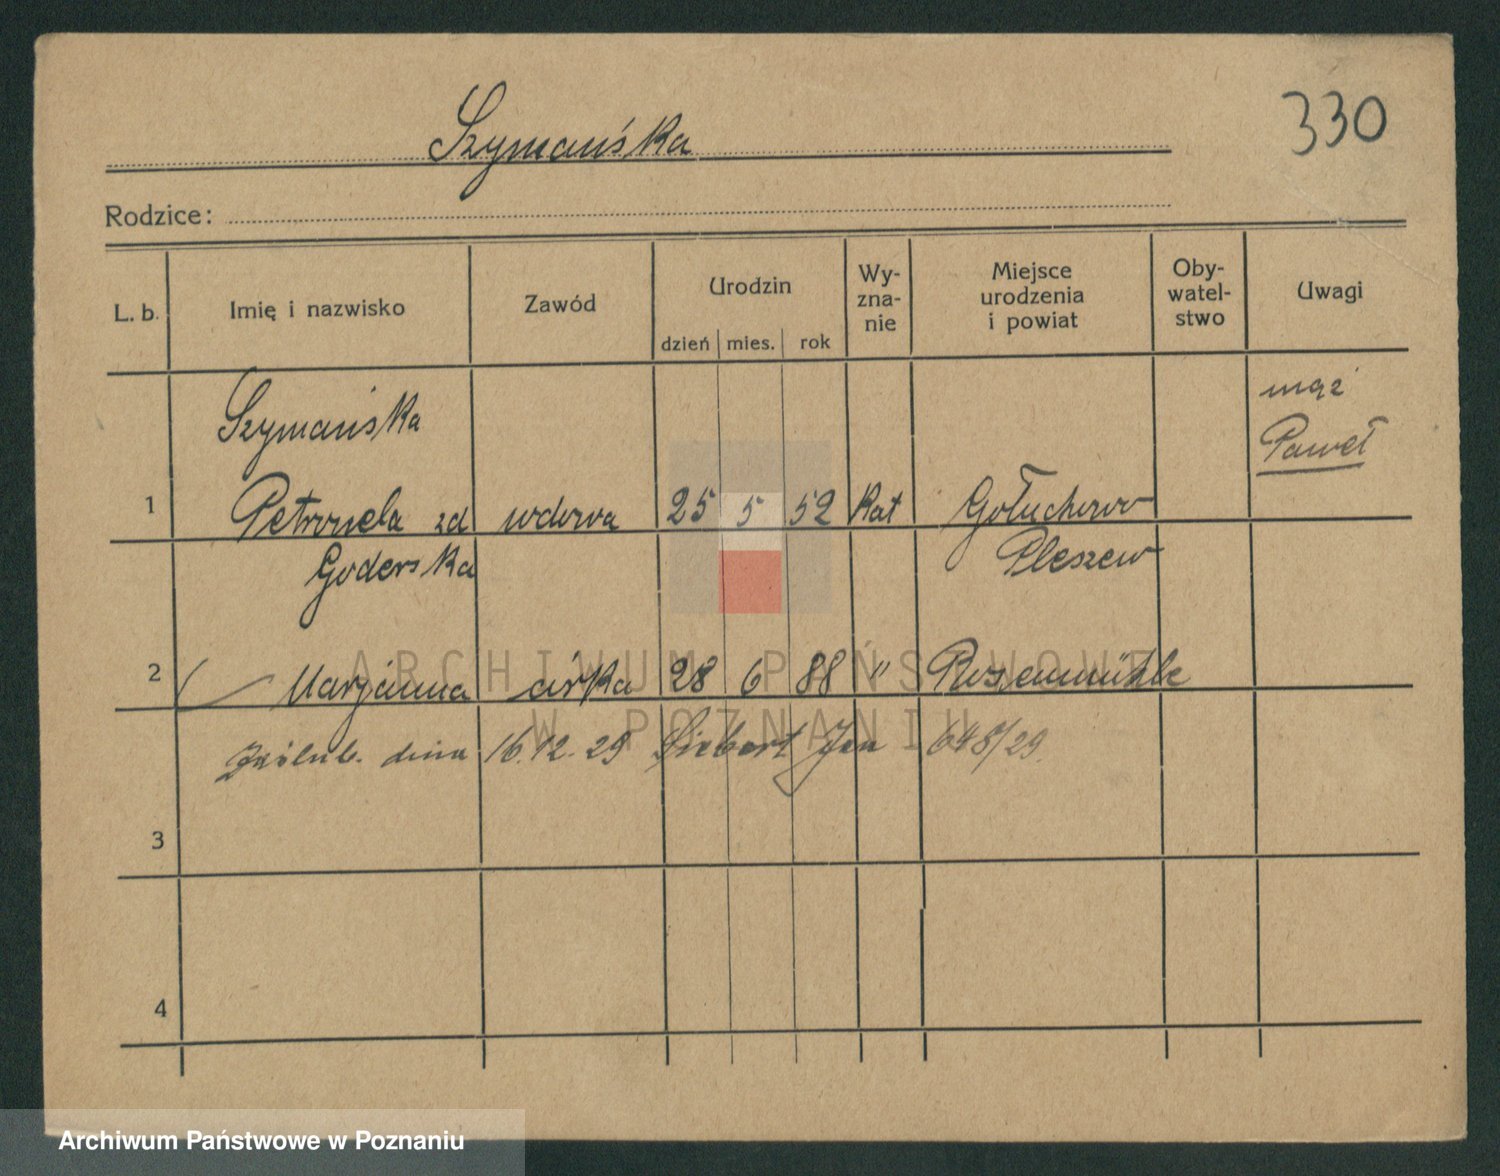 330
Szymańska
Rodzice:
L. b. Imię i nazwisko Zawód Urodzin dzień mies. rok Wy-zna-nie Miejsce urodzenia i powiat Oby-watel-stwo Uwagi
Szymańska mąż Paweł
1 Petronela zd wdowa 25 5 52 Kat Gołuchowo
Goderska Pleszew
2 Marjanna córka 28 6 88 "
dnia 16.12.29 Siebert Jan 648/29.
3
4
ARCHIWUM PAŃSTWOWE
W POZNANIU
Archiwum Państwowe w Poznaniu